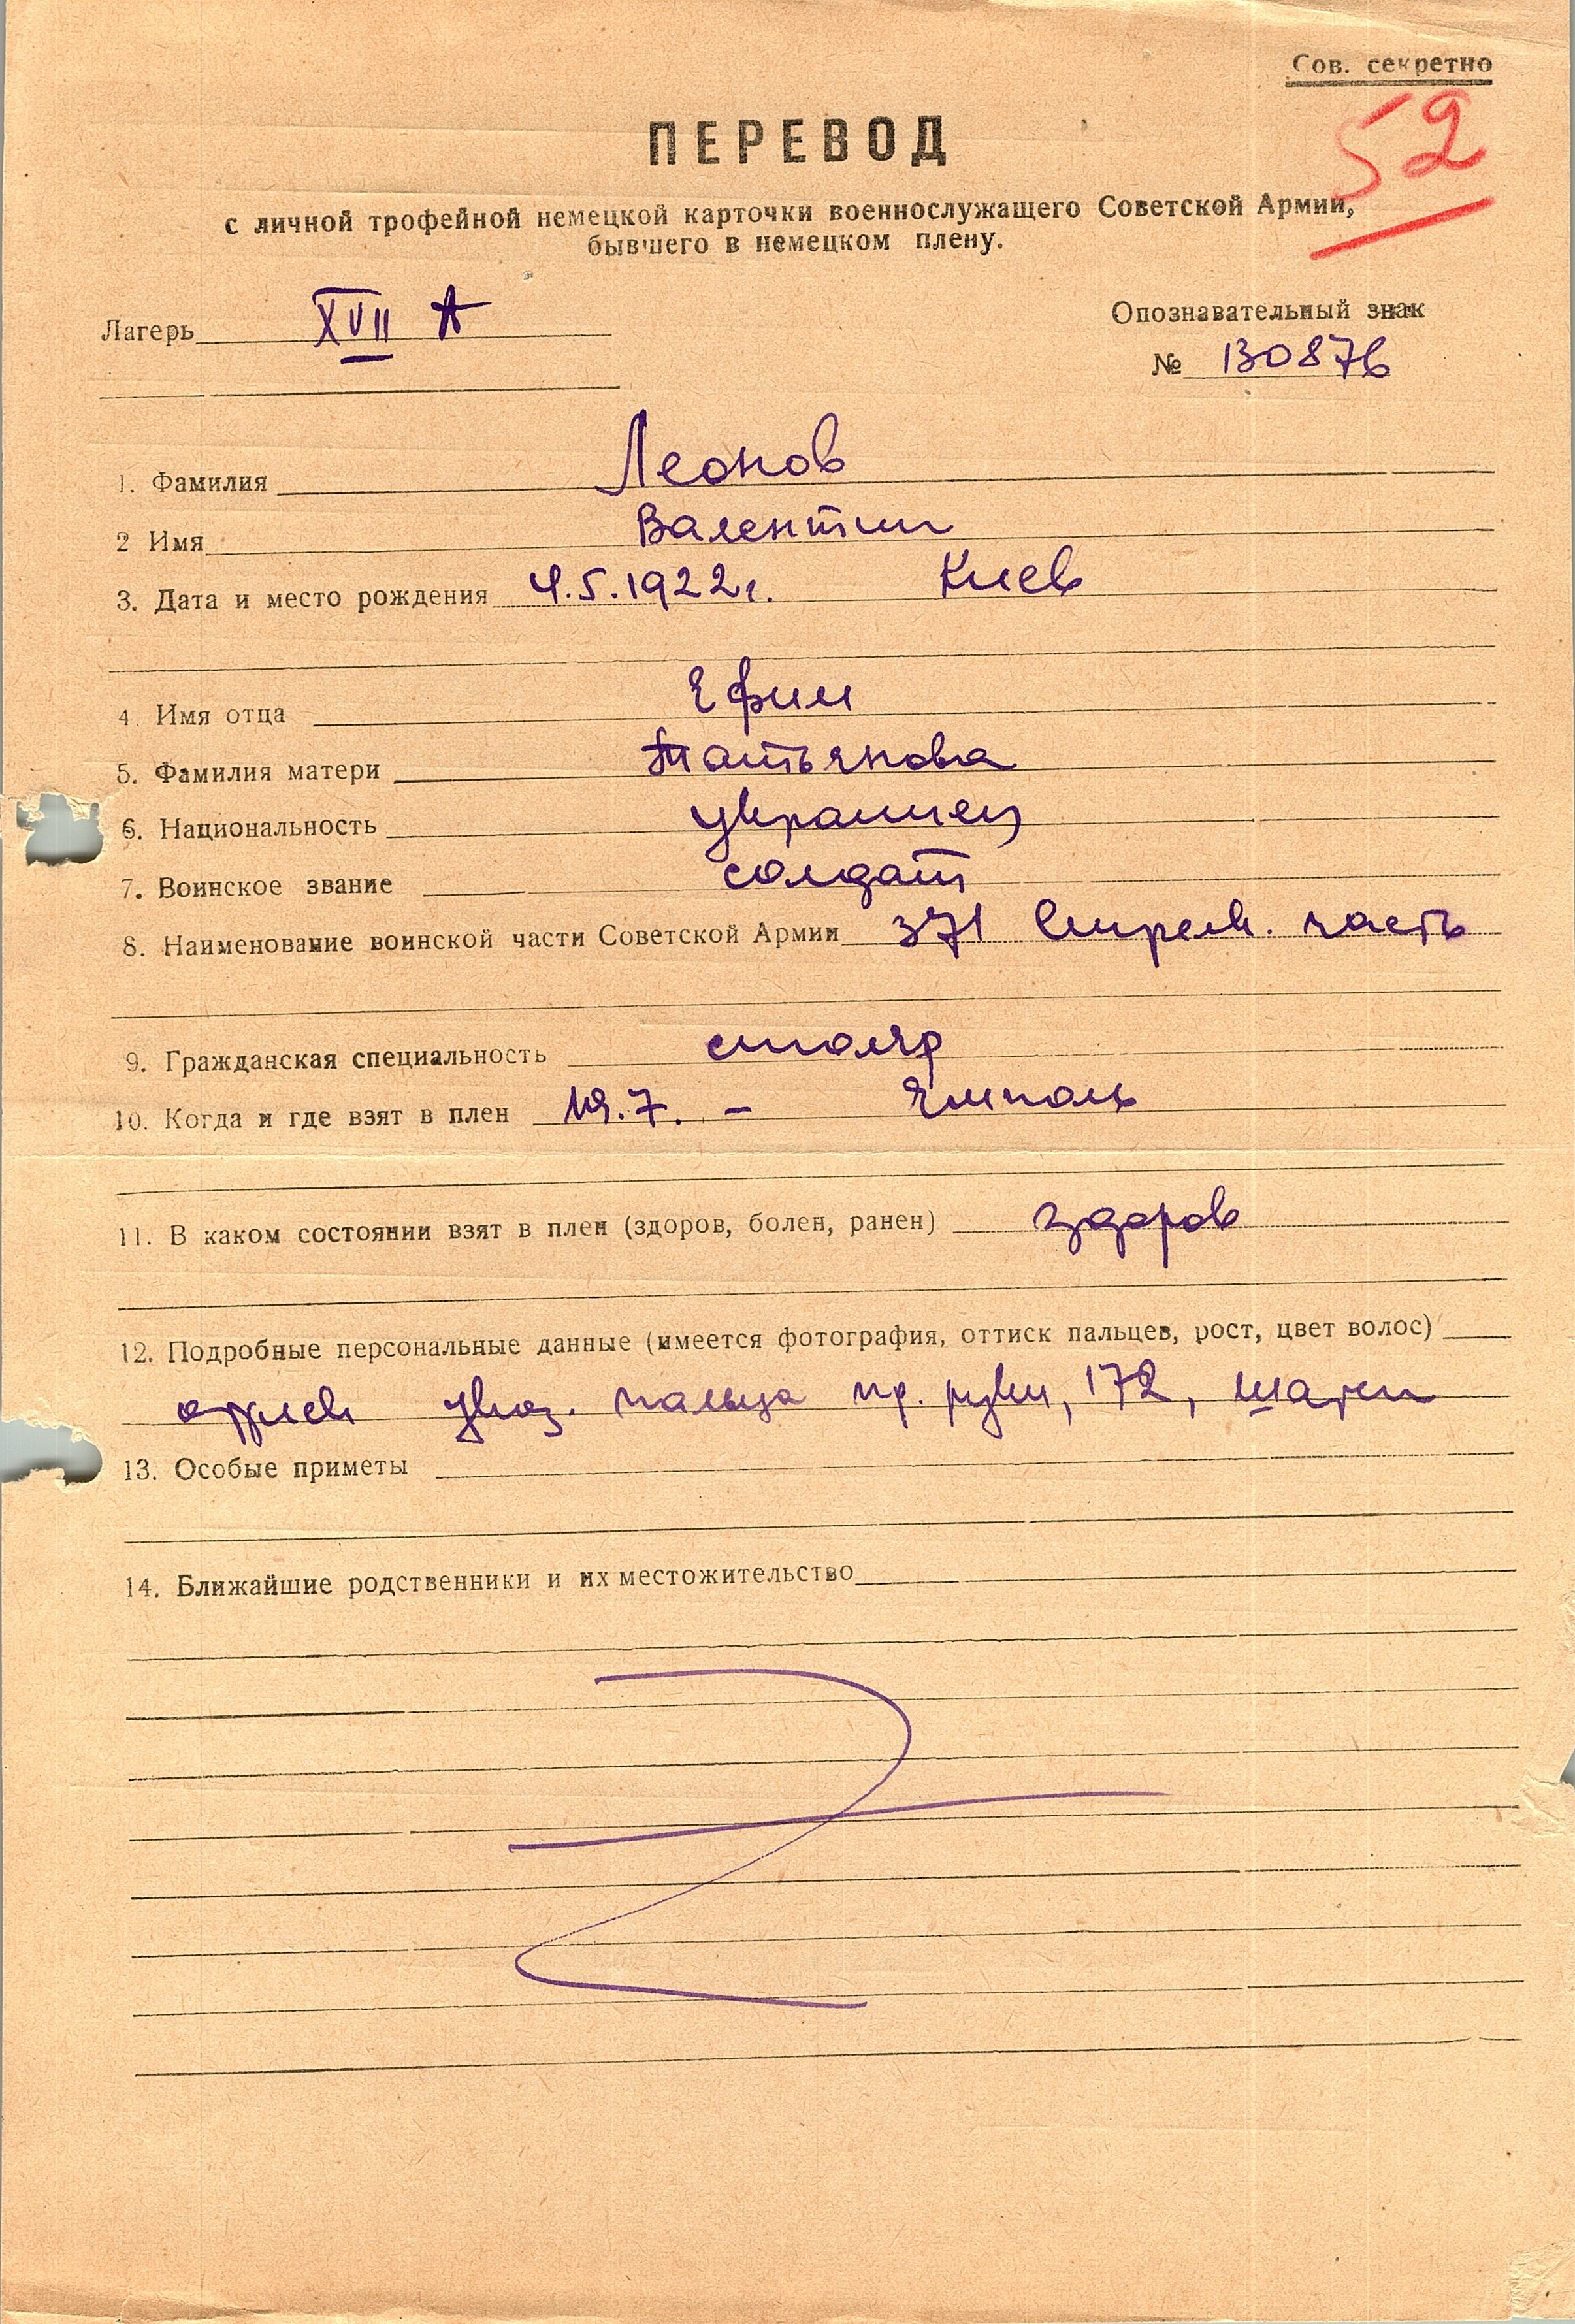 Сов. секретно
52
ПЕРЕВОД
с личной трофейной немецкой карточки военнослужащего Советской Армии,
бывшего в немецком плену.
Лагерь XVII A
Опознавательный знак
№ 130876
1. Фамилия Леонов
2 Имя Валентин
3. Дата и место рождения 4.5.1922г. Киев
4. Имя отца Ефим
5. Фамилия матери Татьянова
6. Национальность украинец
7. Воинское звание солдат
8. Наименование воинской части Советской Армии 371 Стрелк. часть
9. Гражданская специальность столяр
10. Когда и где взят в плен .7. – Ямполь
11. В каком состоянии взят в плен (здоров, болен, ранен) здоров
12. Подробные персональные данные (имеется фотография, оттиск пальцев, рост, цвет волос)
указ. пальца пр. руки, 172, шатен
13. Особые приметы
14. Ближайшие родственники и их местожительство